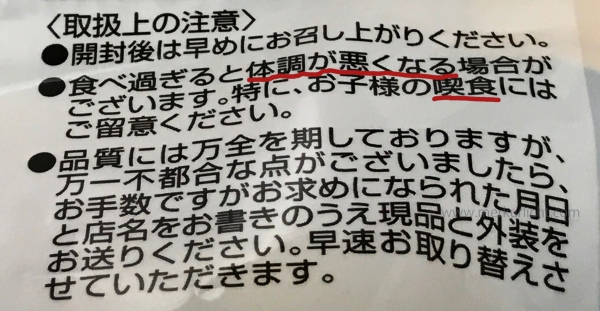 〈取扱上の注意〉
●開封後は早めにお召し上がりください。
●食べ過ぎると体調が悪くなる場合が
ございます。特に、お子様の喫食には
ご留意ください。
●品質には万全を期しておりますが、
万一不都合な点がございましたら、
お手数ですがお求めになられた月日
と店名をお書きのうえ現品と外装を
お送りください。早速お取り替えさ
せていただきます。